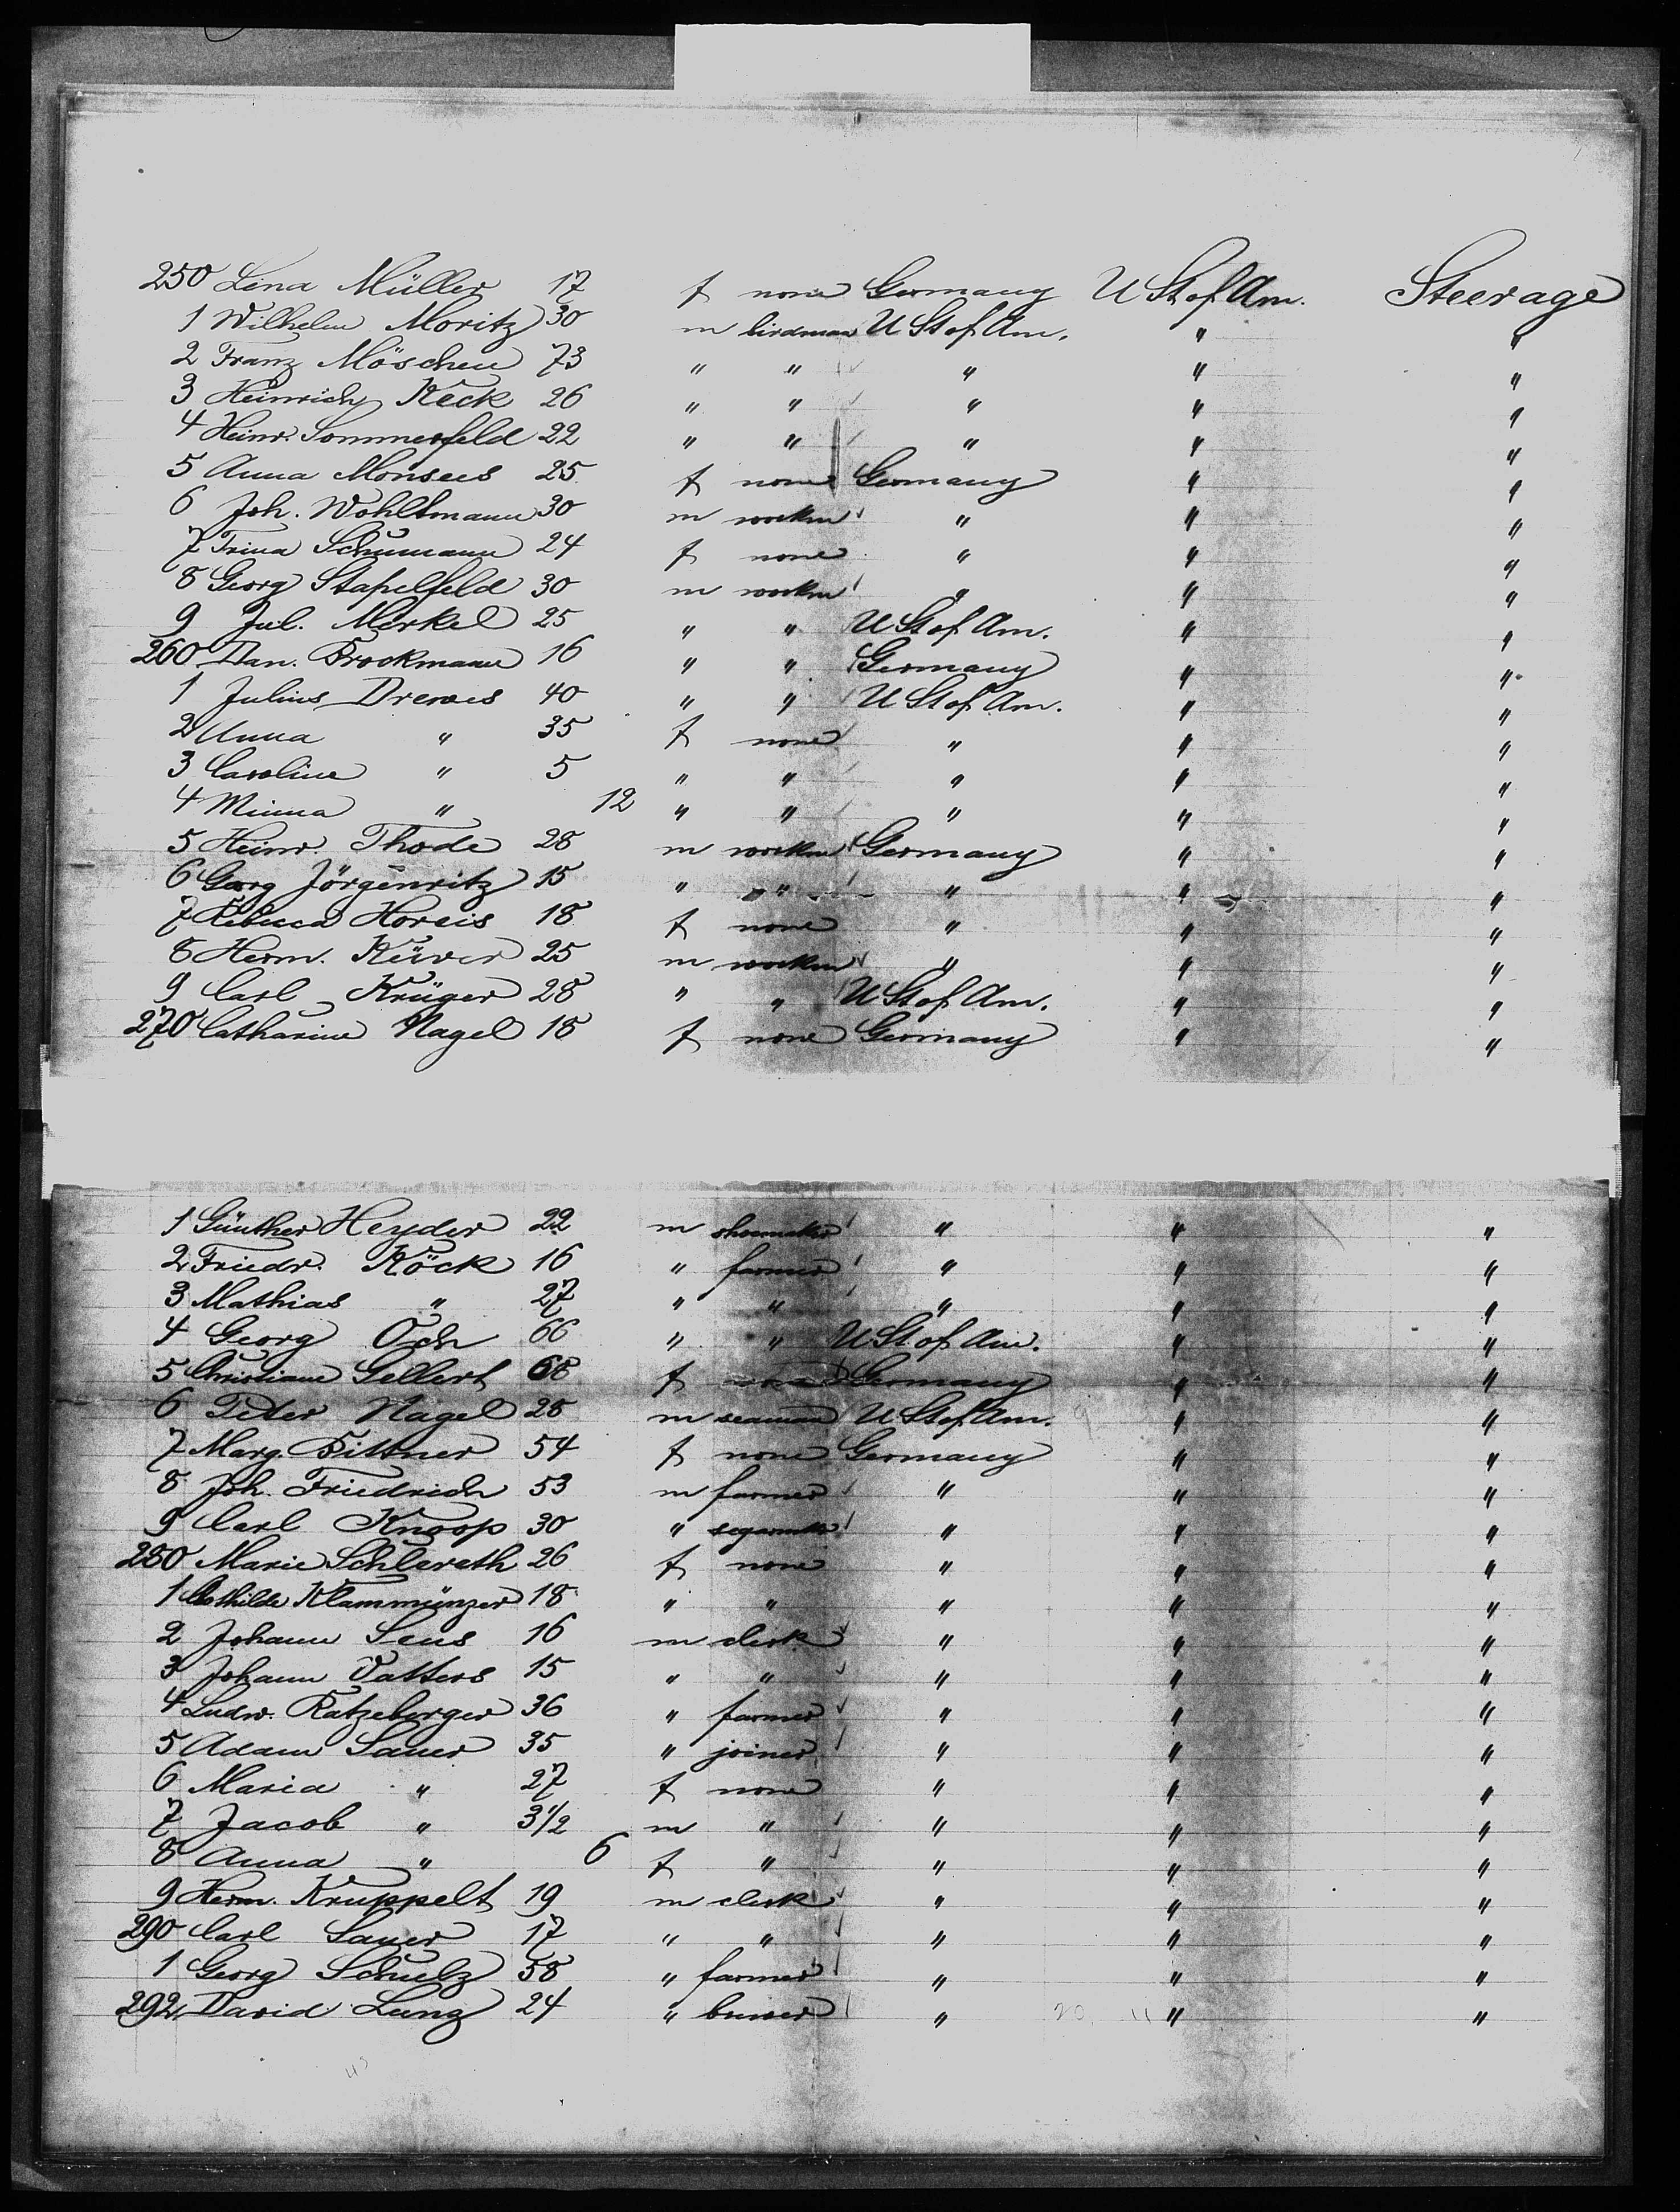 250 Lina Müller 17 f none Germany U St of Am. Steerage
1 Wilhelm Moritz 30 m birdman U St of Am. " "
2 Franz Möschen 73 " " " " "
3 Heinrich Keck 26 " " " " "
4 Heinr. Sommerfeld 22 " " " " "
5 Anna Monsees 25 f none Germany " "
6 Joh. Wohltmann 30 m workm " " "
7 Trina Schumann 24 f none " " "
8 Georg Stapelfeld 30 m workm " " "
9 Jul. Merkel 25 " " U St of Am. " "
260 Dan. Brockmann 16 " " Germany " "
1 Julius Drewes 40 " " U St of Am. " "
2 Anna " 35 f none " " "
3 Caroline " 5 " " " " "
4 Minna " 12 " " " " "
5 Heinr. Thode 28 m workm Germany " "
6 Georg Jörgenritz 15 " " " " "
7 Rebecca Horeis 18 f none " " "
8 Herm. Küver 25 m workm " " "
9 Carl Krüger 28 " " U St of Am. " "
270 Catharine Nagel 18 f none Germany " "
1 Günther Heyder 22 m shoemaker " " "
2 Friedr. Köck 16 " farmer " " "
3 Mathias " 27 " " " " "
4 Georg Och 66 " " U St of Am. " "
5 Christiane Gellert 68 f none Germany " "
6 Peter Nagel 28 m seaman U St of Am. " "
7 Marg. Bittner 54 f none Germany " "
8 Joh. Friedrich 53 m farmer " " "
9 Carl Knoop 30 " segarmk " " "
280 Marie Schlereth 26 f none " " "
1 Clothilde Klammünzer 18 " " " " "
2 Johann Sens 16 m clerk " " "
3 Johann Vatters 15 " " " " "
4 Ludw. Ratzeberger 36 " farmer " " "
5 Adam Sauer 35 " joiner " " "
6 Maria " 27 f none " " "
7 Jacob " 3 1/2 m " " " "
8 Anna " 6 f " " " "
9 Herm. Kruppelt 19 m clerk " " "
290 Carl Sauer 17 " " " " "
1 Georg Schulz 58 " farmer " " "
292 David Lung 24 " brewer " " "